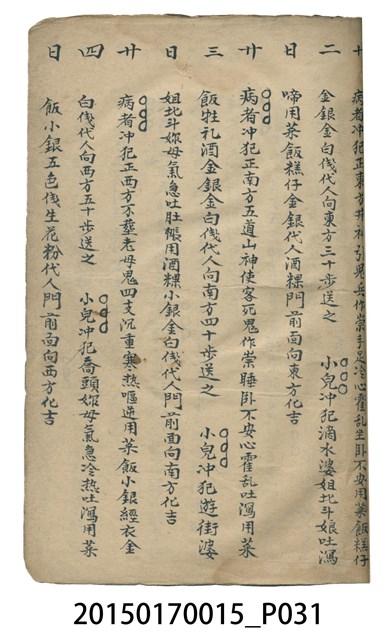 十二日
病者冲犯正東方井神引鬼兵作祟手足冷心霍乱坐卧不安用菜飯糕仔
金銀金白伐代人向東方三十步送之　小兒冲犯滴水婆姐北斗娘吐瀉
啼用菜飯糕仔金銀代人酒粿門前面向東方化吉
廿三日
病者冲犯正南方五道山神使客死鬼作祟睡卧不安心霍乱吐瀉用菜
飯牲礼酒金銀金白伐代人向南方四十步送之　小兒冲犯遊街婆
姐北斗妳母氣急吐肚脹用酒粿小銀金白伐代人門前面向南方化吉
廿四日
病者冲犯正西方不葬老母鬼四支沉重寒熱嘔逆用菜飯小銀經衣金
白伐代人向西方五十步送之　小兒冲犯喬頭妳母氣急冷熱吐瀉用菜
飯小銀五色伐生花粉代人門前面向西方化吉
20150170015_P031